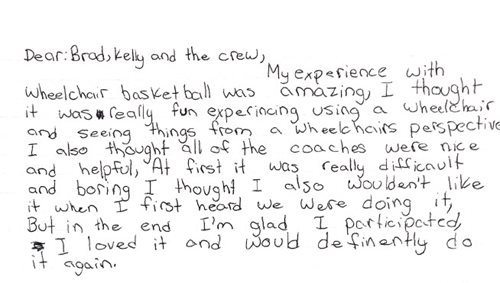 Dear: Brad, Kelly and the crew,
My experience with
wheelchair basketball was amazing, I thought
it was really fun experincing using a wheelchair
and seeing things from a wheelchairs perspective
I also thought all of the coaches were nice
and helpful, At first it was really difficault
and boring I thought I also wouldn't like
it when I first heard we were doing it,
But in the end I'm glad I participated,
I loved it and would definently do
it again.